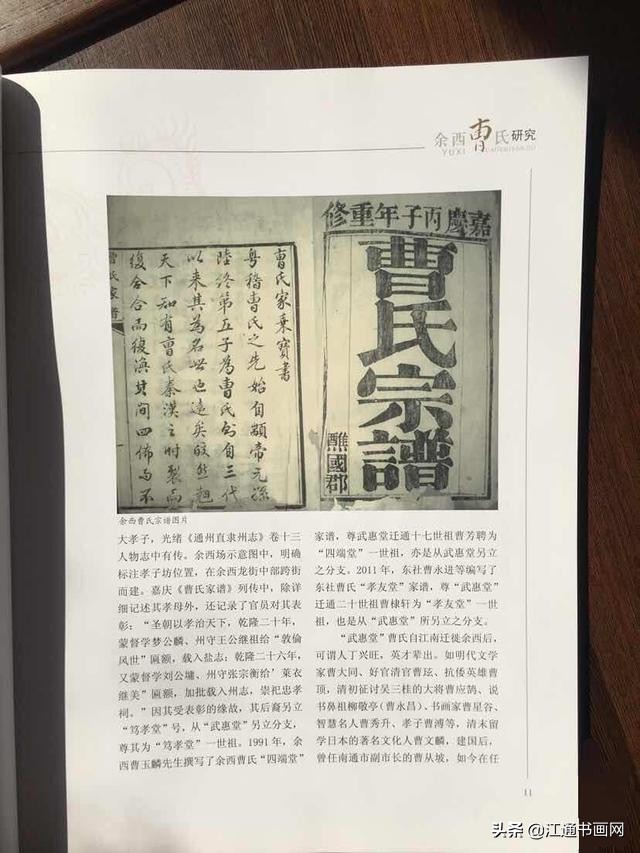 余西曹氏研究
YUXI
嘉慶丙子年重修
曹氏宗譜
國郡
曹氏家乘寶書
粵稽曹氏之先始自顓帝元孫
陸終第五子為曹氏自三代
以來其為名世也遠矣然
天下知有曹氏秦漢之時裂而
復合合而復渙其間四佈而不
曹氏家譜
余西曹氏宗谱图片
大孝子，光绪《通州直隶州志》卷十三
人物志中有传。余西场示意图中，明确
标注孝子坊位置，在余西龙街中部跨街
而建。嘉庆《曹氏家谱》列传中，除详
细记述其孝母外，还记录了官员对其表
彰：“圣朝以孝治天下，乾隆二十年，
蒙督学梦公麟、州守王公继祖给“敦伦
风世”匾额，载入盐志；乾隆二十六年，
又蒙督学刘公墉、州守张宗衡给’莱衣
继美”匾额，加批载入州志，崇祀忠孝
祠。”因其受表彰的缘故，其后裔另立
“笃孝堂”号，从“武惠堂”另立分支，
尊其为“笃孝堂”一世祖。1991年，余
西曹玉麟先生撰写了余西曹氏“四端堂”
家谱，尊武惠堂迁通十七世祖曹芳聘为
“四端堂”一世祖，亦是从武惠堂另立
之分支。2011年，东社曹永进等编写了
东社曹氏“孝友堂”家谱，尊“武惠堂”
迁通二十世祖曹棣轩为“孝友堂”一世
祖，也是从“武惠堂”所另立之分支。
“武惠堂”曹氏自江南迁徙余西后，
可谓人丁兴旺，英才辈出。如明代文学
家曹大同、好官清官曹玹、抗倭英雄曹
顶，清初征讨吴三桂的大将曹应鹄、说
书鼻祖柳敬亭（曹永昌）、书画家曹星谷、
智慧名人曹秀升、孝子曹溥等，清末留
学日本的著名文化人曹文麟，建国后，
曾任南通市副市长的曹从坡，如今在任
11
头条@江通书画网